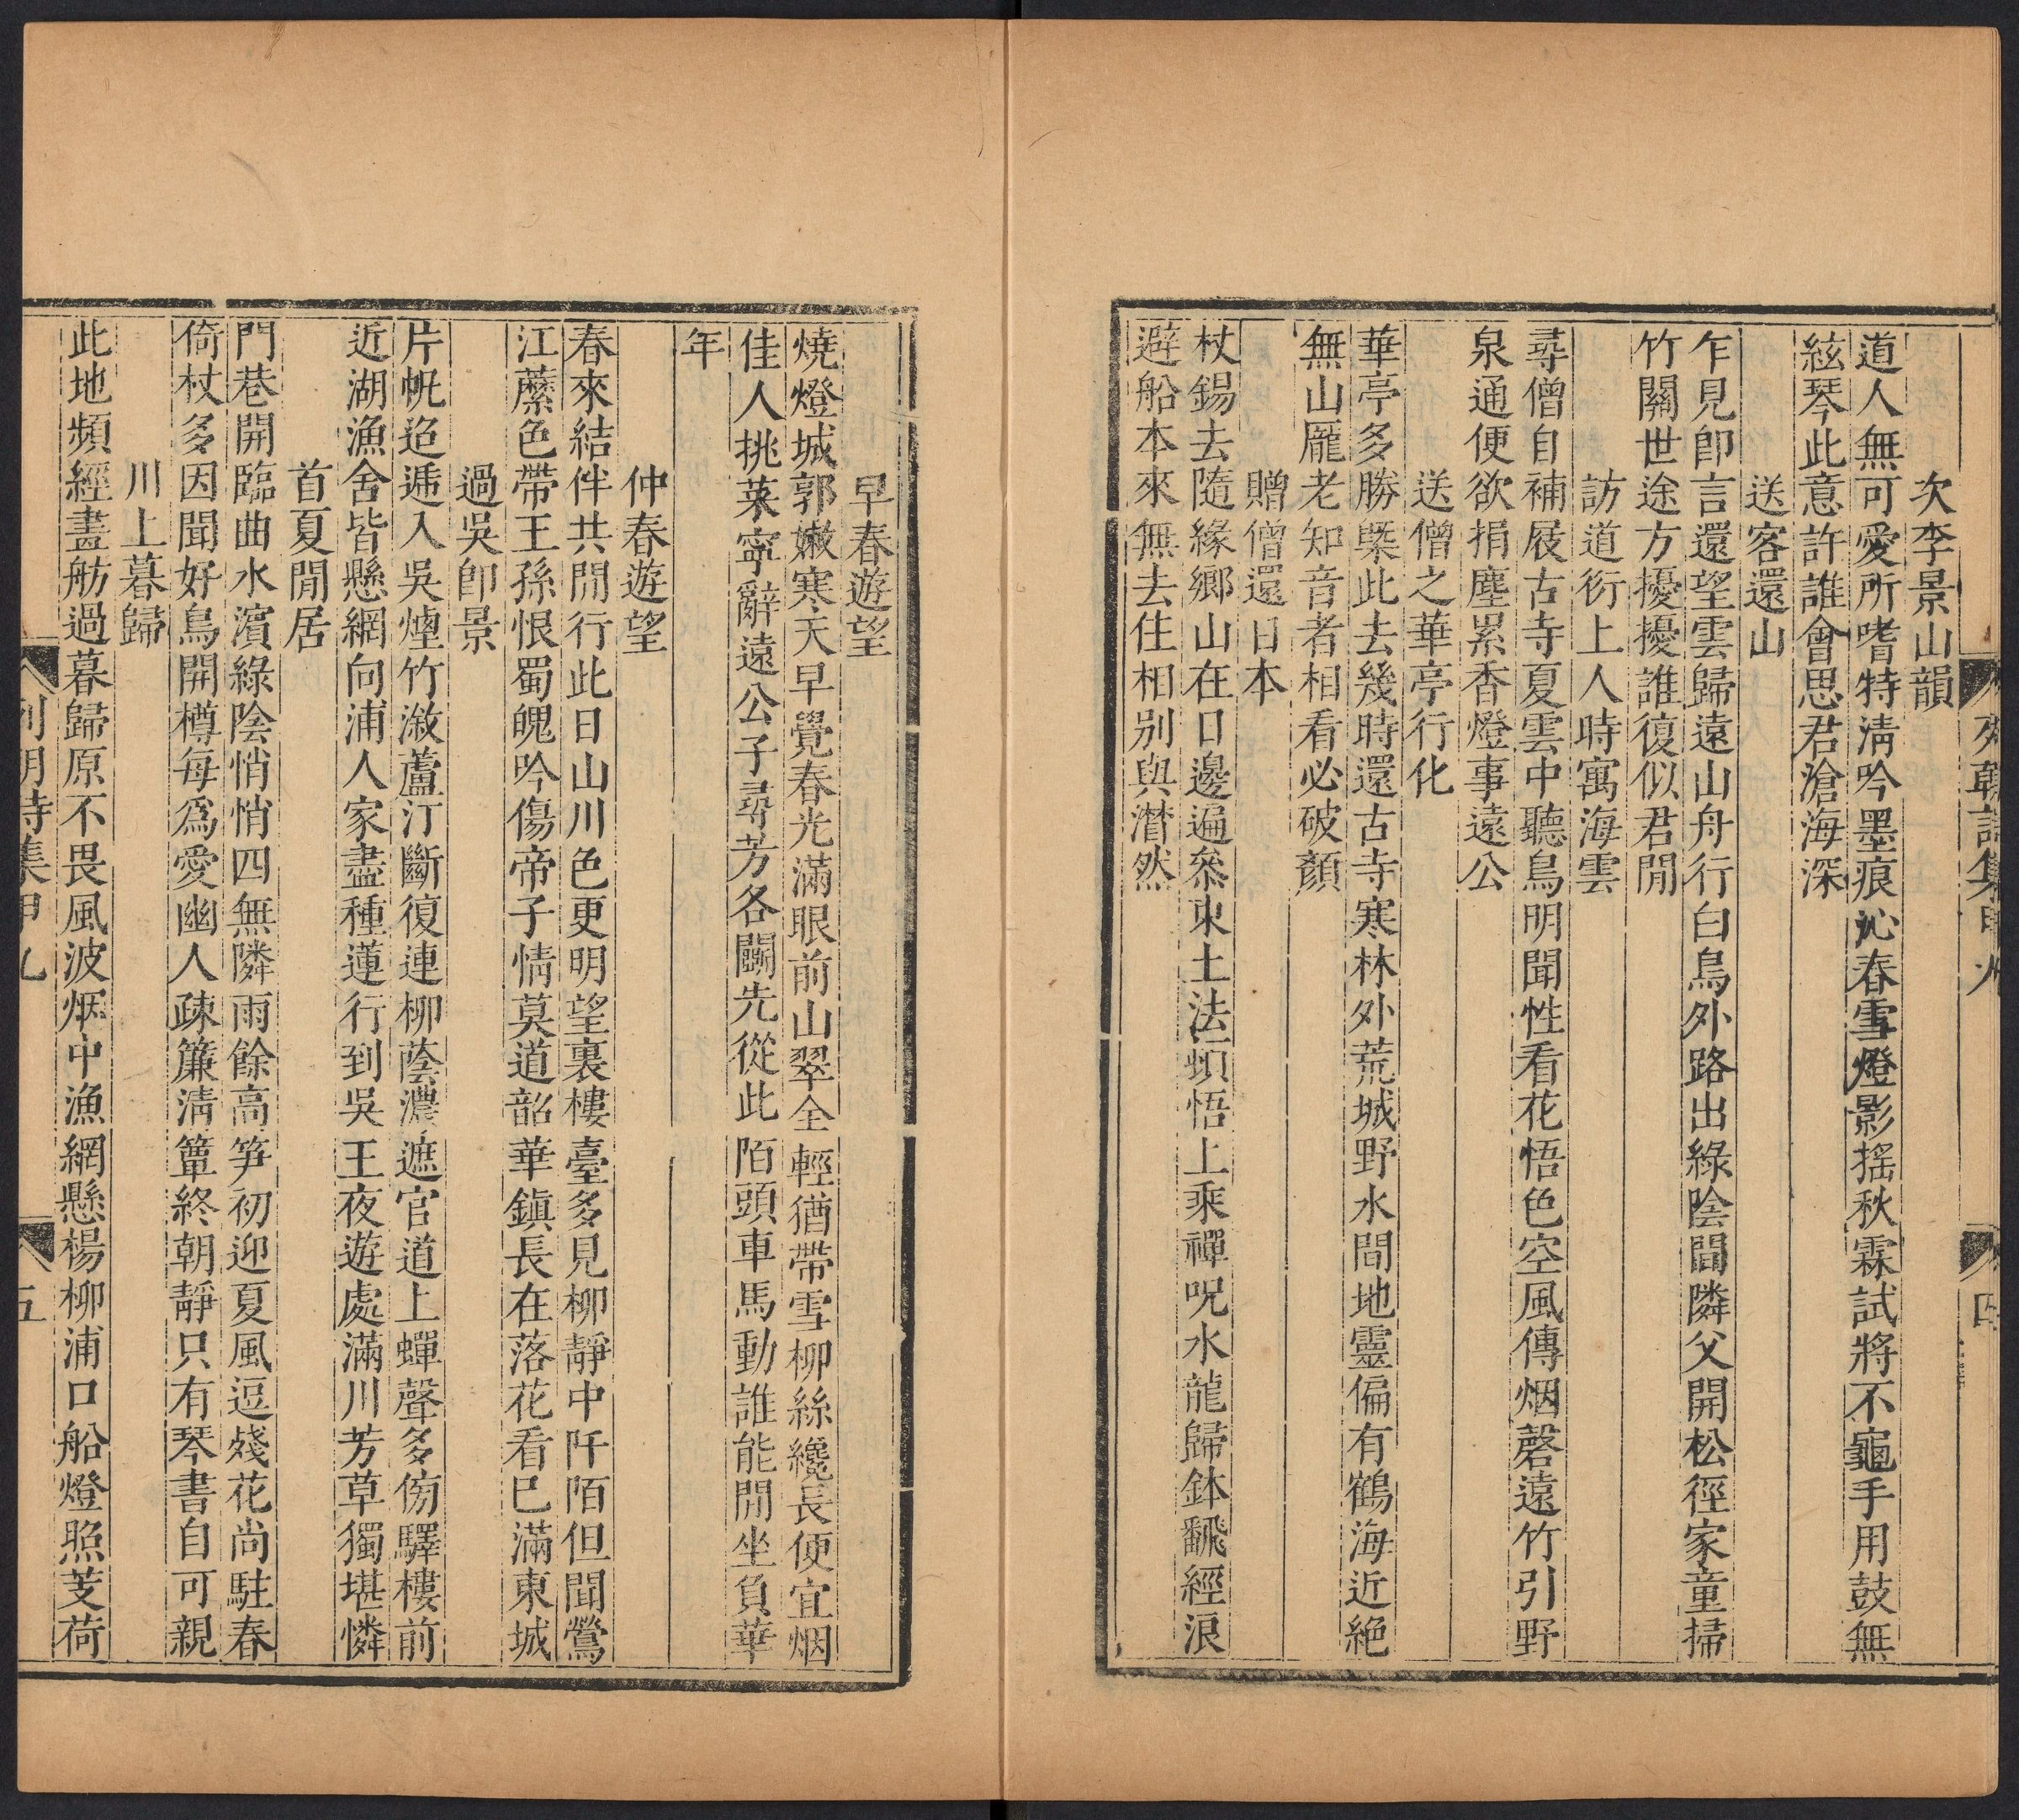 次李景山韻
道人無可愛所嗜特淸吟墨痕沁春雪燈影搖秋霖試將不龜手用鼓無
絃琴此意許誰會思君滄海深
送客還山
乍見卽言還望雲歸遠山舟行白鳥外路出綠陰間隣父開松徑家童掃
竹關世途方擾擾誰復似君閒
訪道衍上人時寓海雲
尋僧自補屐古寺夏雲中聽鳥明聞性看花悟色空風傳烟磬遠竹引野
泉通便欲捐塵累香燈事遠公
送僧之華亭行化
華亭多勝槩此去幾時還古寺寒林外荒城野水間地靈偏有鶴海近絶
無山龐老知音者相看必破顏
贈僧還日本
杖錫去隨緣鄉山在日邊遍叅東土法頓悟上乘禪呪水龍歸鉢飜經浪
避船本來無去住相別與潸然
早春遊望
燒燈城郭嫩寒天早覺春光滿眼前山翠全輕猶帶雪柳絲纔長便宜烟
佳人挑菜寧辭遠公子尋芳各鬭先從此陌頭車馬動誰能閒坐負華
年
仲春遊望
春來結伴共閒行此日山川色更明望裏樓臺多見柳靜中阡陌但聞鶯
江蘼色帶王孫恨蜀魄吟傷帝子情莫道韶華鎭長在落花看已滿東城
過吳卽景
片帆迢遞入吳煙竹溆蘆汀斷復連柳蔭濃遮官道上蟬聲多傍驛樓前
近湖漁舍皆懸網向浦人家盡種蓮行到吳王夜遊處滿川芳草獨堪憐
首夏閒居
門巷開臨曲水濱綠陰悄悄四無隣雨餘高笋初迎夏風逗殘花尚駐春
倚杖多因聞好鳥開樽每爲愛幽人疎簾淸簟終朝靜只有琴書自可親
川上暮歸
此地頻經畫舫過暮歸原不畏風波烟中漁網懸楊柳浦口船燈照芰荷
列朝詩集甲九
五